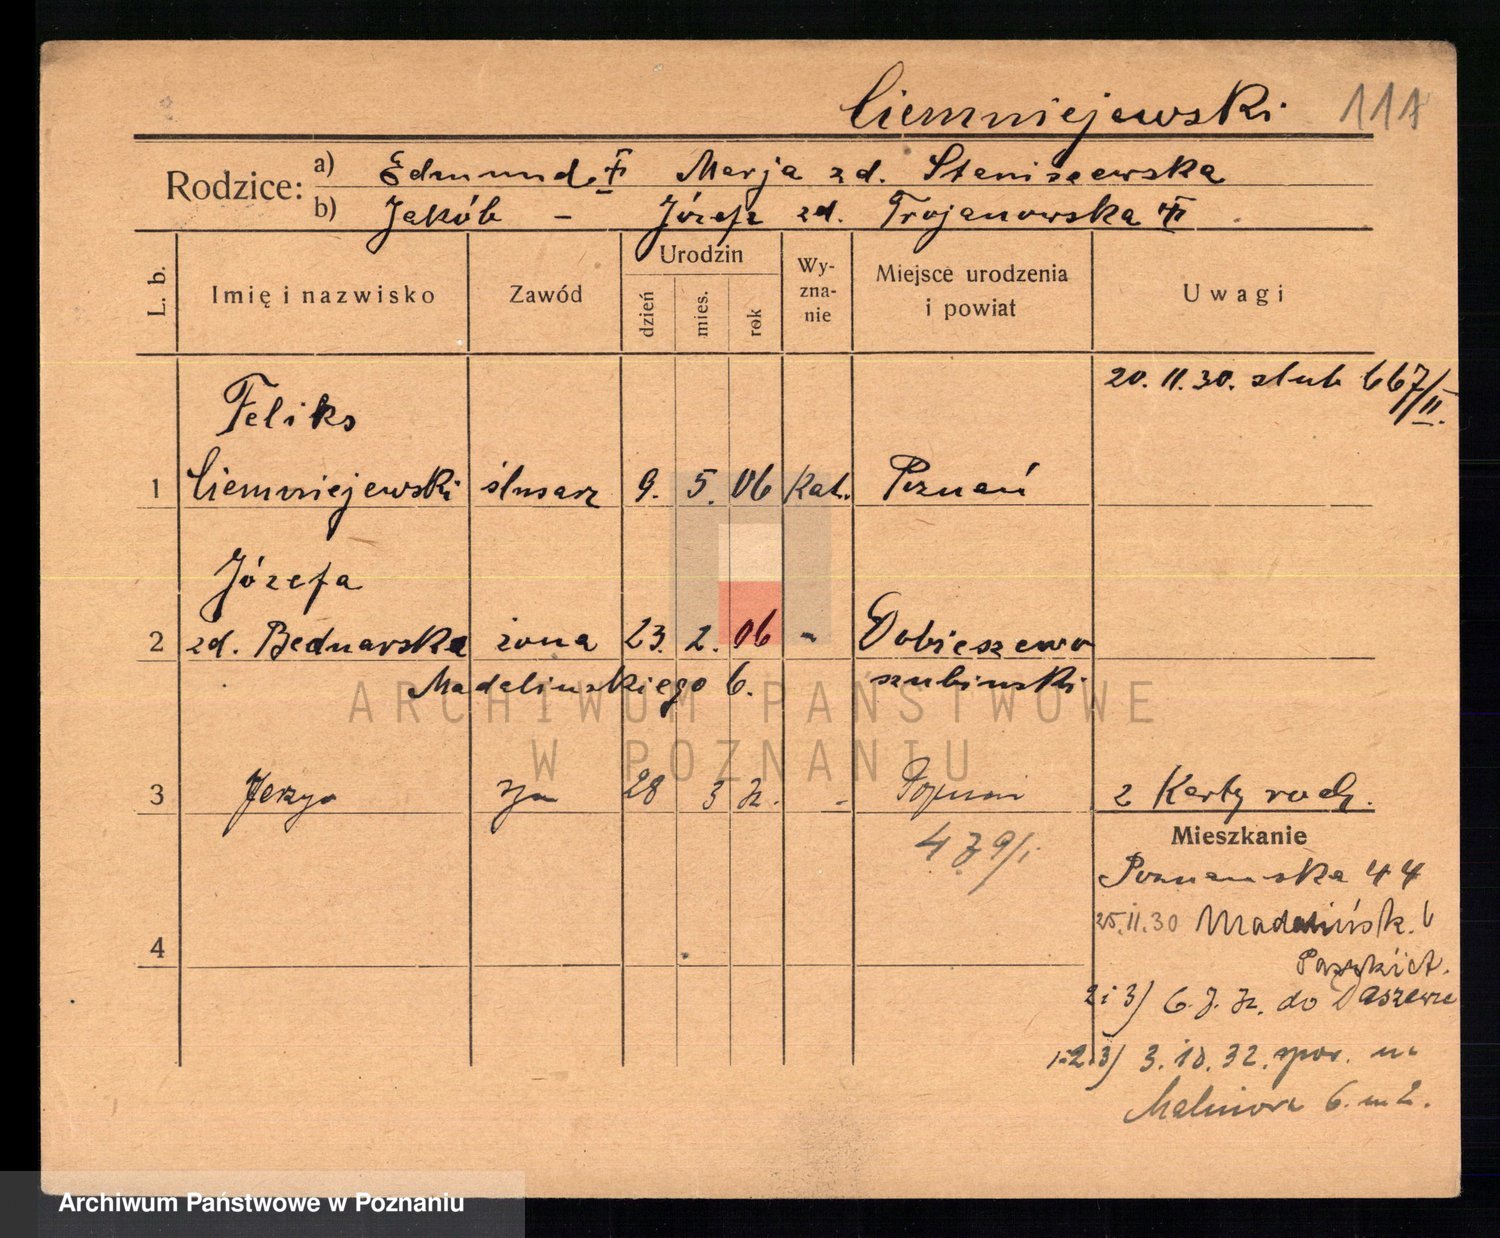 Ciemniejewski 117
Rodzice: a) Edmund ✝ Marja zd. Staniszewska
b) Jakób – Józefa zd. Trojanowska ✝
L. b. Imię i nazwisko Zawód Urodzin dzień mies. rok Wy-zna-nie Miejsce urodzenia i powiat Uwagi
20. 11. 30. ślub 667/II.
Feliks
1 Ciemniejewski ślusarz 9. 5. 06 kat. Poznań
Józefa
2 zd. Bednarska żona 23. 2. 06 " Dobieszewo
Madalińskiego 6. szubiński
ARCHIWUM PAŃSTWOWE
W POZNANIU
3 Jerzy syn 28 3 32. - Poznań 2 Karty rodz.
479/i
Mieszkanie
Poznańska 44
25.11.30 Madalińsk. 6
4
2 i 3) 6. 7. 32. do Daszewic
1. 2. i 3) 3. 10. 32. na
6. m 2.
Archiwum Państwowe w Poznaniu